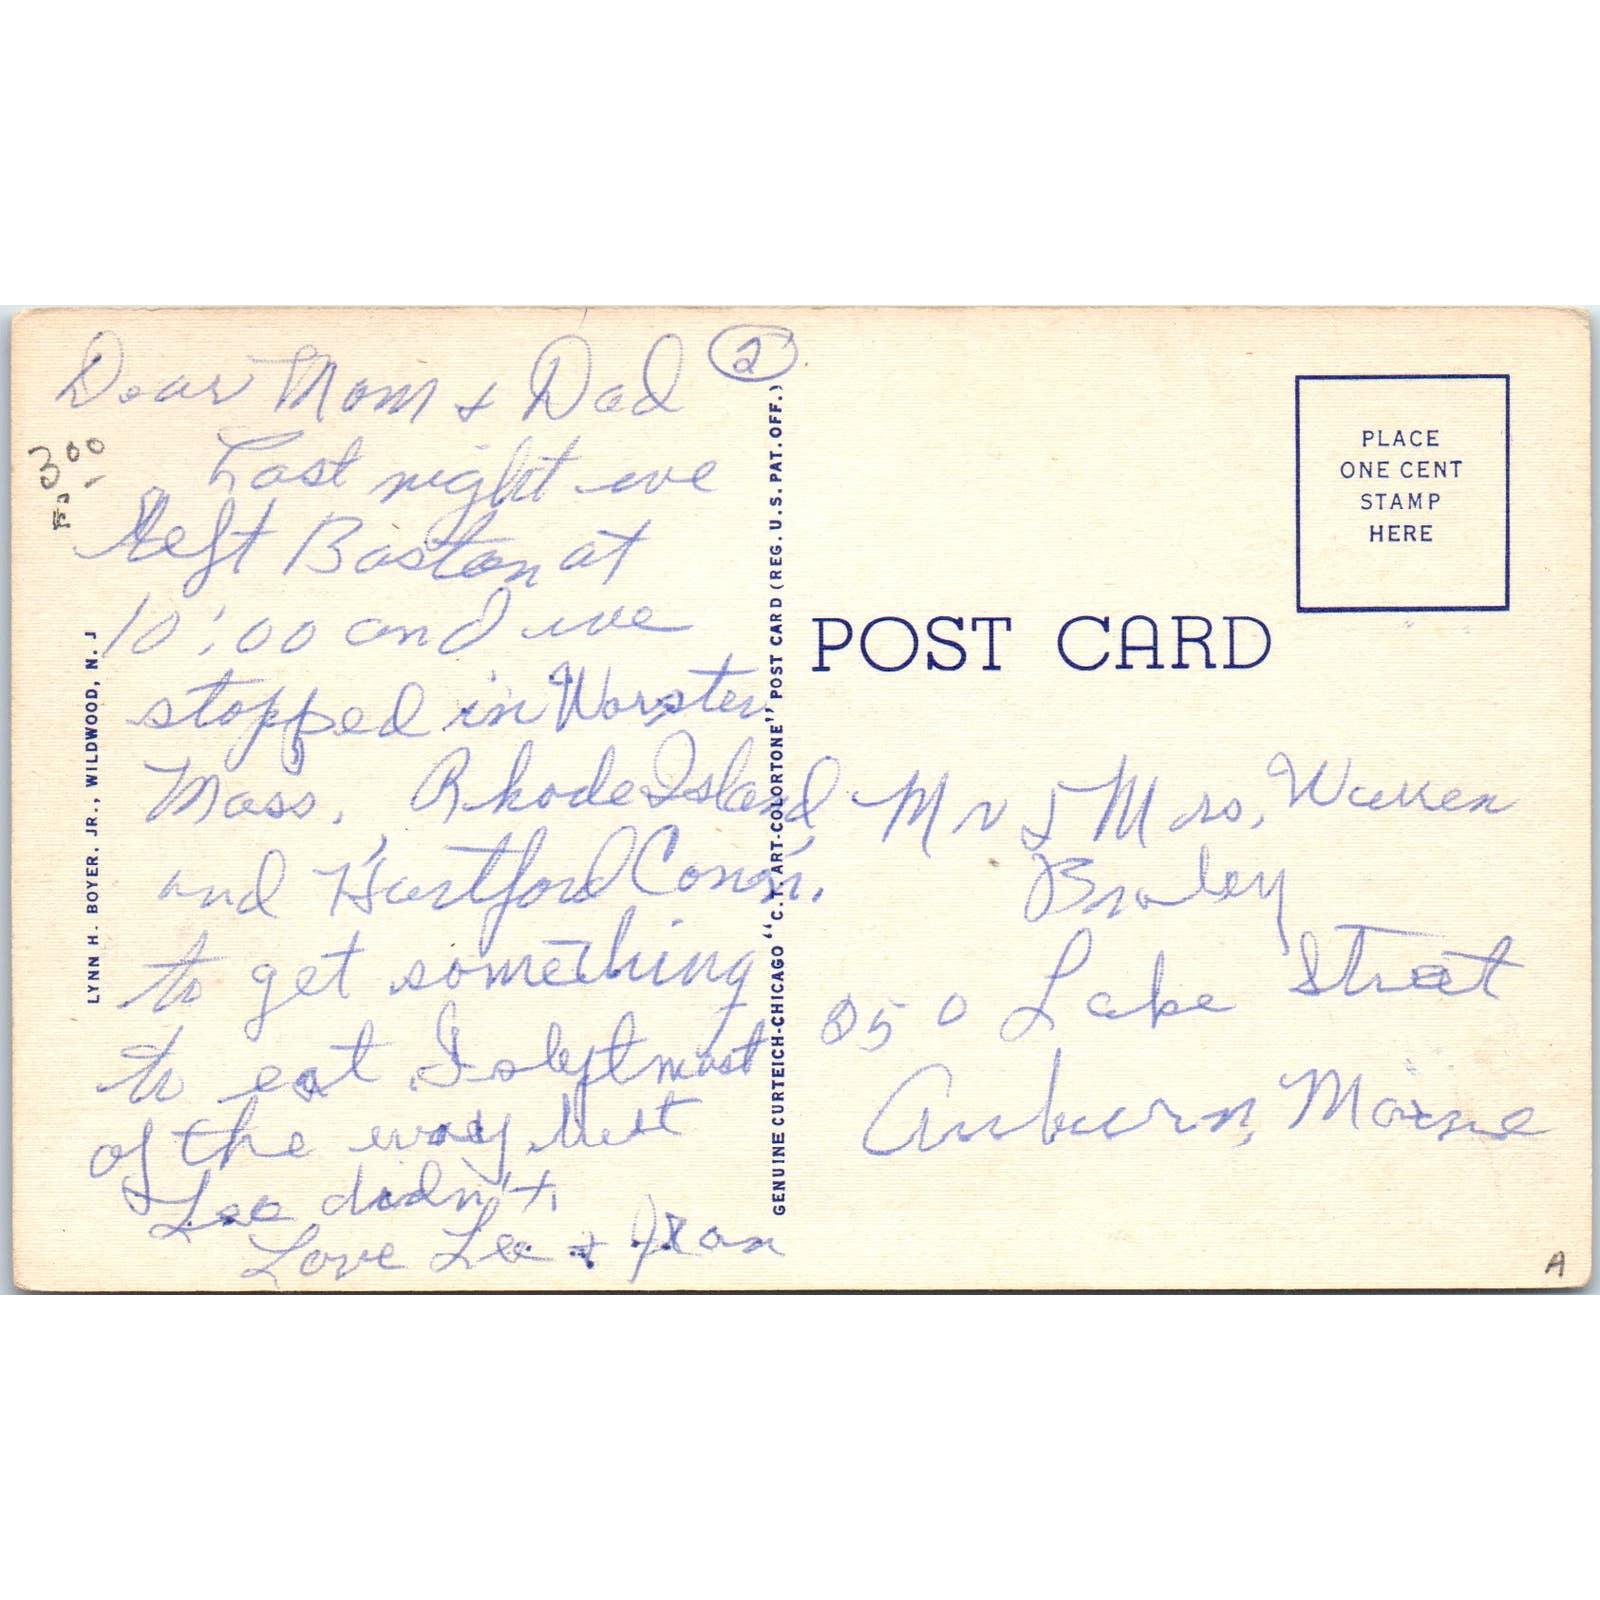 Dear Mom & Dad
②
Last night we
left Boston at
10:00 and we
stopped in Worster
Mass, Rhode Island
and Hartford Conn.
to get something
to eat. I slept most
of the way but
Lee didn't.
Love Lee & Jean
3.00
LYNN H. BOYER, JR., WILDWOOD, N. J
GENUINE CURTEICH-CHICAGO "C. T. ART-COLORTONE" POST CARD (REG. U. S. PAT. OFF.)
PLACE
ONE CENT
STAMP
HERE
POST CARD
Mr & Mrs, Warren
Braley
250 Lake Street
Auburn, Maine
A